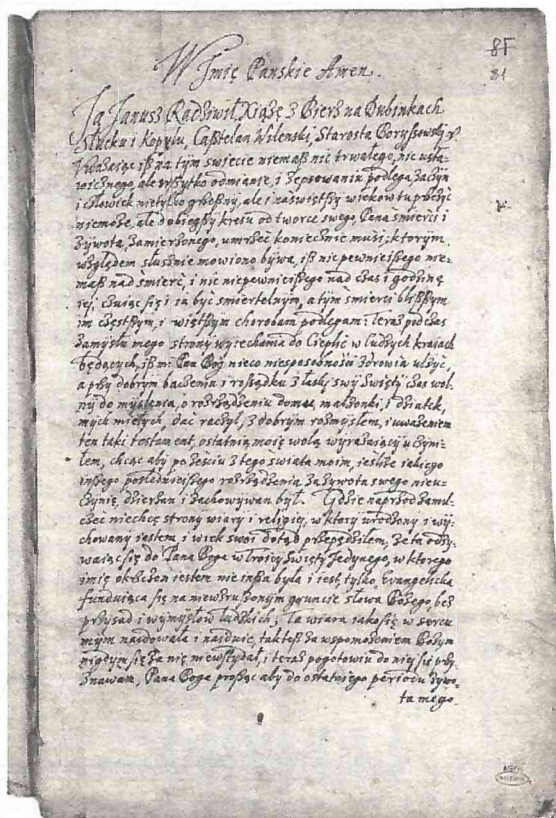 85
81
W Imię Panskie Amen.
Ia Janusz Radziwił, Xiążę z Bierz na Dubinkach
Słucku i Kopylu, Casztelan Wilenski, Starosta Boryssowski &
Uważaiąc iż na tym swiecie niemasz nic trwałego, nic usta-
wicznego, ale wszytko odmianie, i zepsowaniu podlega, zaczym
i człowiek nietylko grzeszny, ale i naswiętszy wiekow tu przeżyć
niemoże, ale dobiegszy kresu od tworce swego, Pana smierci i
żywota, zamierzonego, umrzeć koniecznie musi; ktorym
względem słusznie mowiono bywa, iż nic pewnieiszego nie-
masz nad smierć, i nic niepewnieiszego nad czas i godzinę
iej, czuiąc się i ia być smiertelnym, a tym smierci bliższym
im częstszym, i więtszym chorobam podlegam: Teraz podczas
zamysłu mego strony wyiechania do Cieplic w cudzych kraiach
będących, iż mi Pan Bog nieco niesposobnosci zdrowia ulżyć,
a przy dobrym baczeniu i rozsądku z łaski swy Swięty czas wol-
ny do myslenia, o rozrządzeniu domu, małżonki, i dziatek,
mych miełych, dać raczył, z dobrym rozmysłem, i uważeniem
ten taki testament, ostatnią moię wolą wyrażaiący uczyni-
łem, chcąc aby po zesciu z tego swiata moim, iesliże iakiego
inszego poslednieiszego rozrządzenia za żywota swego nieu-
czynię, dzierżan i zachowywan był. Gdzie naprzod zamil-
czeć niechcę strony wiary i religiej, w ktory urodzony i wy-
chowany iestem, i wiek swoi dotąd przepędziłem, że ta odzy-
waiąc się do Pana Boga w Troicy Swięty Jedynego, w ktorego
imię okrzczon iestem nie insza była i iest tylko, Evangelicka
funduiąca się na niewzruszonym gruncie słowa Bożego, bez
przysad i wymysłow ludzkich; Ta wiara iako się w sercu
mym naidowała i naiduie, tak też za wspomożeniem Bożym
nigdym się za nię niewstydał, i teraz pogotowiu do niej się przy-
znawam, Pana Boga prosząc aby do ostatniego periodu żywo-
ta mego